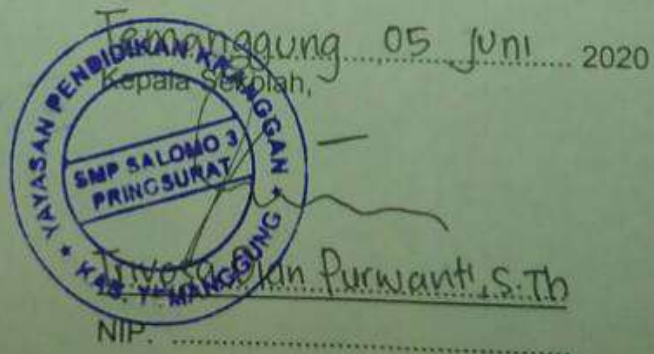 Temanggung 05 Juni 2020
Kepala Sekolah,
YAYASAN PENDIDIKAN KRANGGAN
SMP SALOMO 3
PRINGSURAT
* KAB. TEMANGGUNG *
Trivosa Dian Purwanti, S.Th
NIP.